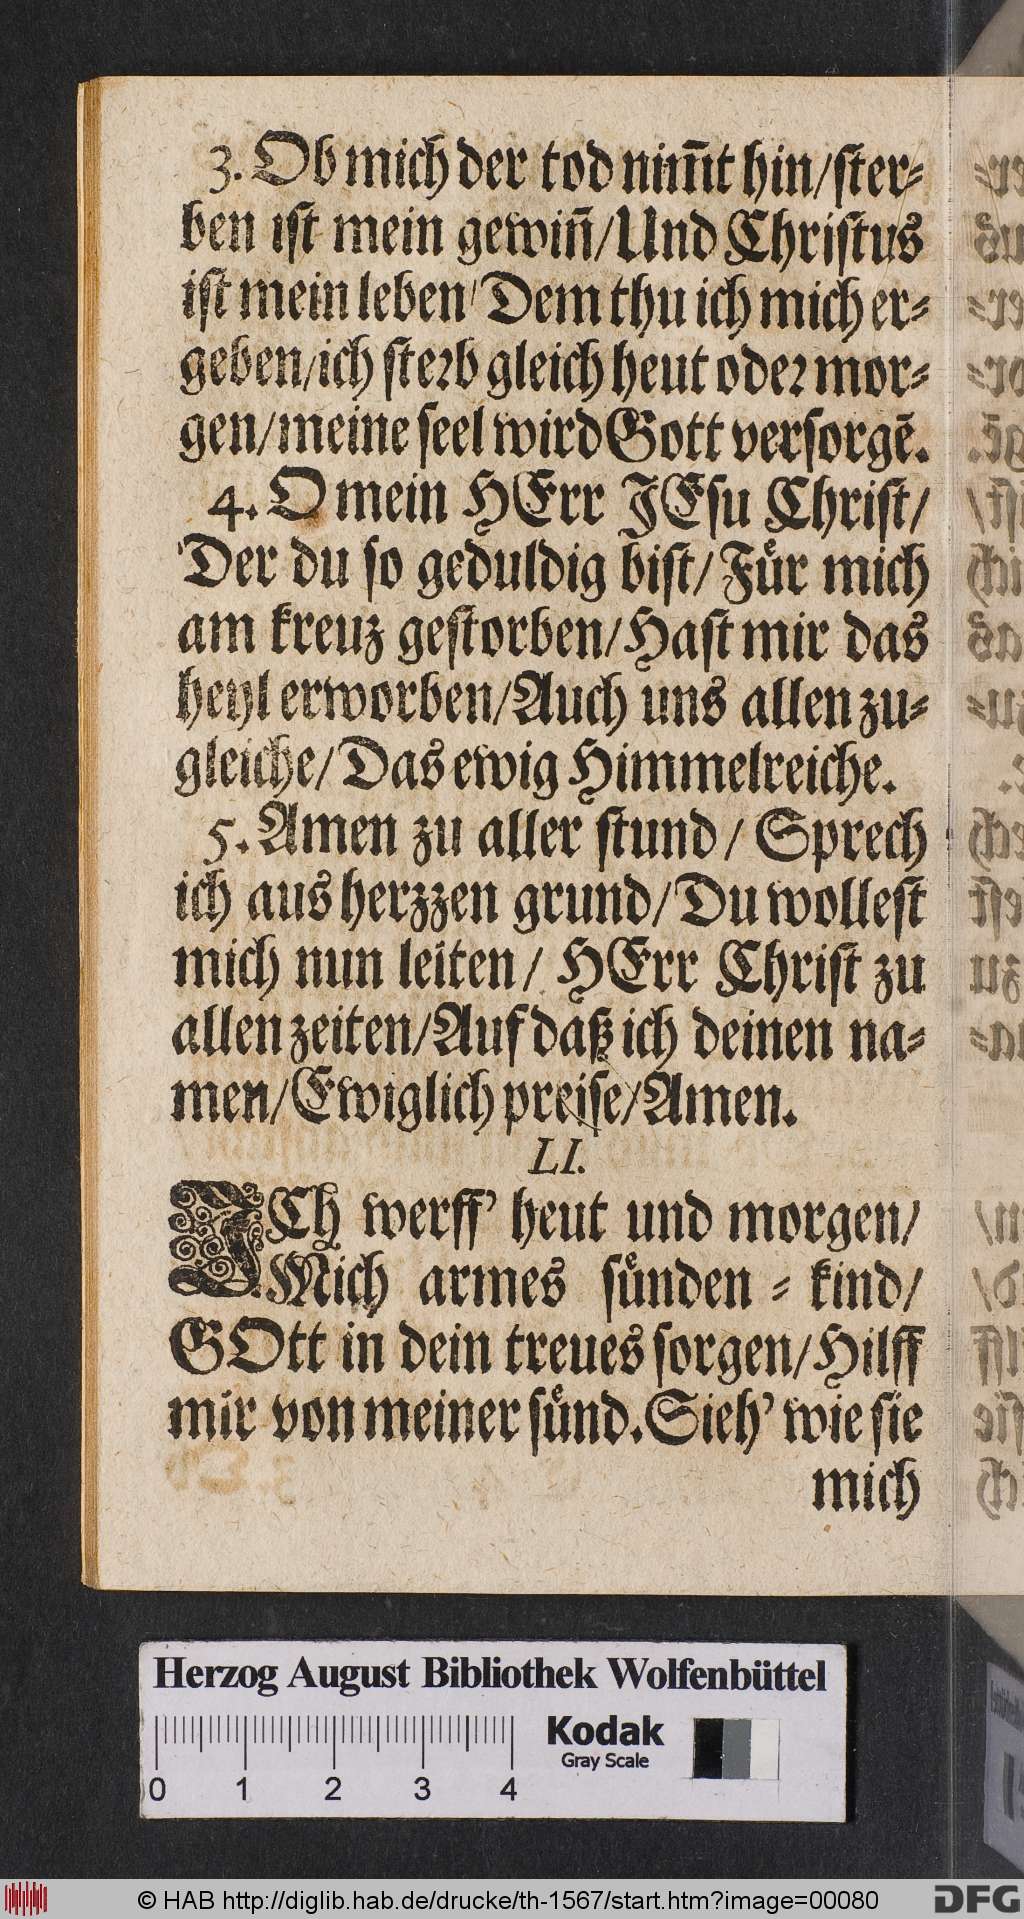 3. Ob mich der tod nim̄t hin/ ster⸗
ben ist mein gewiñ/ Und Christus
ist mein leben/ Dem thu ich mich er⸗
geben/ ich sterb gleich heut oder mor⸗
gen/ meine seel wird Gott versorgē.
4. O mein HErr JEsu Christ/
Der du so geduldig bist/ Fuͤr mich
am kreuz gestorben/ Hast mir das
heyl erworben/ Auch uns allen zu⸗
gleiche/ Das ewig Himmelreiche.
5. Amen zu aller stund/ Sprech
ich aus herzzen grund/ Du wollest
mich nun leiten/ HErr Christ zu
allen zeiten/ Auf daß ich deinen na⸗
men/ Ewiglich preise/ Amen.
LI.
ICh werff' heut und morgen/
Mich armes suͤnden⸗kind/
GOtt in dein treues sorgen/ Hilff
mir von meiner suͤnd. Sieh' wie sie
mich
Herzog August Bibliothek Wolfenbüttel
Kodak
Gray Scale
0 1 2 3 4
© HAB http://diglib.hab.de/drucke/th-1567/start.htm?image=00080
DFG